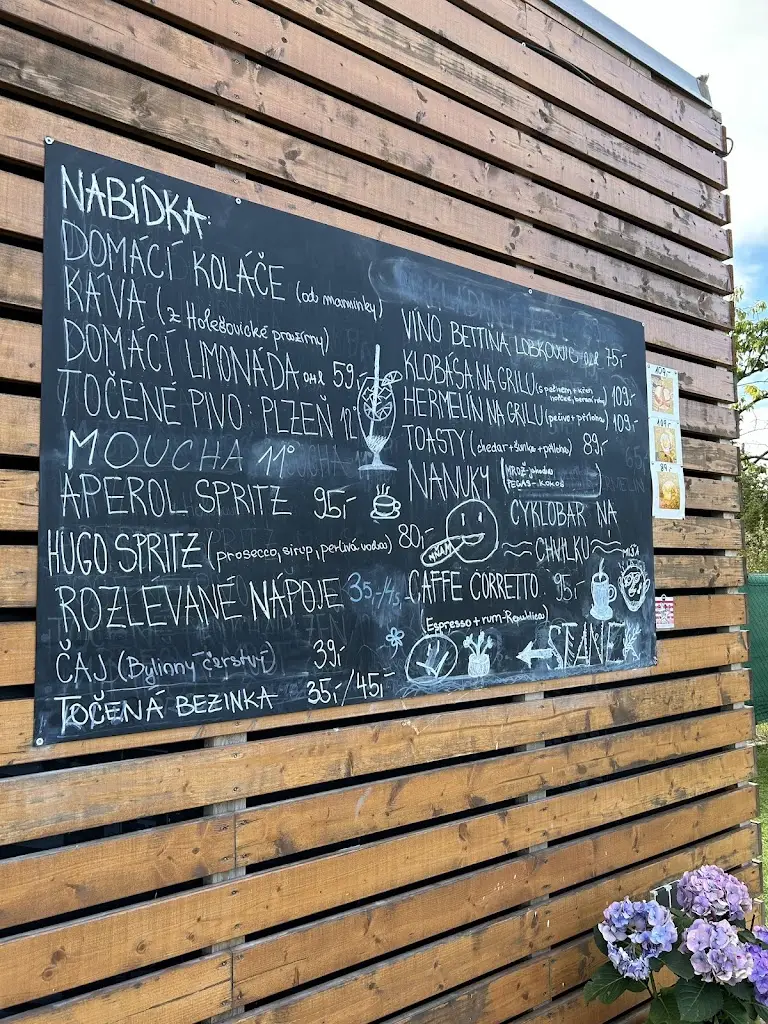 NABÍDKA:
DOMÁCÍ KOLÁČE (od maminky)
KÁVA (z Holešovické pražírny)
DOMÁCÍ LIMONÁDA 0,4l 59,-
TOČENÉ PIVO: PLZEŇ 12°
MOUCHA 11°
APEROL SPRITZ 95,-
HUGO SPRITZ (prosecco, sirup, perlivá voda) 80,-
ROZLÉVANÉ NÁPOJE 35,-/45,-
ČAJ (Bylinný čerstvý) 39,-
TOČENÁ BEZINKA 35,-/45,-
VÍNO BETTINA LOBKOWIC 75,-
KLOBÁSA NA GRILU 109,-
HERMELÍN NA GRILU (pečivo + příloha) 109,-
TOASTY (chedar + šunka + příloha) 89,-
NANUKY MROŽ - jahoda
PEGAS - KOKOS
MŇAM
CYKLOBAR NA
CHVILKU
MÍŠA
CAFFE CORRETTO. 95,-
(Espresso + rum - Republica)
STANE
109,-
109,-
89,-